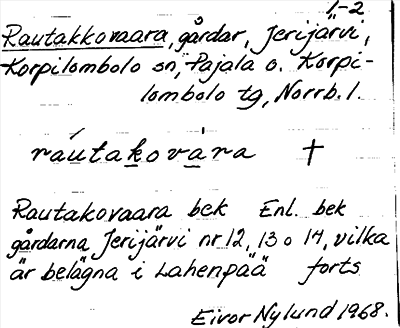 1-2
Rautakkovaara, gårdar, Jerijärvi,
Korpilombolo sn, Pajala o. Korpi-
lombolo tg, Norrb. l.
rautakovara †
Rautakovaara bek Enl. bek
gårdarna Jerijärvi nr 12, 13 o 14, vilka
är belägna i Lahenpää forts
Eivor Nylund 1968.